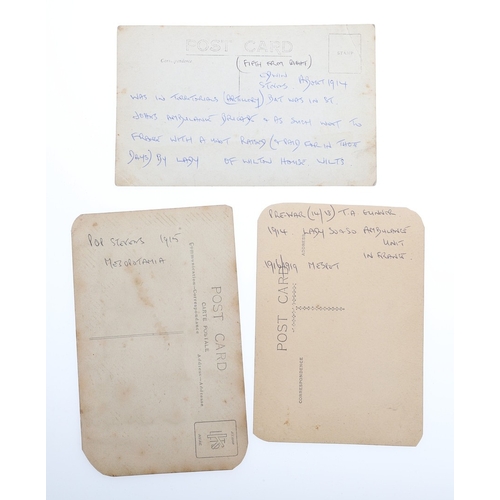 POST CARD
(FIRST FROM RIGHT)
EDWIN
STEVENS AUGUST 1914
WAS IN TERRITORIALS (ARTILLERY) BUT WAS IN ST
JOHNS AMBULANCE & AS SUCH WENT TO
FRANCE WITH A UNIT RAISED (& PAID FOR IN THOSE
DAYS) BY LADY OF WILTON HOUSE WILTS
POP STEVENS 1915
MESOPOTAMIA
POST CARD
CARTE POSTALE
Communication-Correspondance
Address-Adresse
PRE-WAR (14/18) T.A. GUNNER
1914 LADY AMBULANCE
UNIT
IN FRANCE.
1915/1919 MESPOT
POST CARD
ADDRESS
CORRESPONDENCE